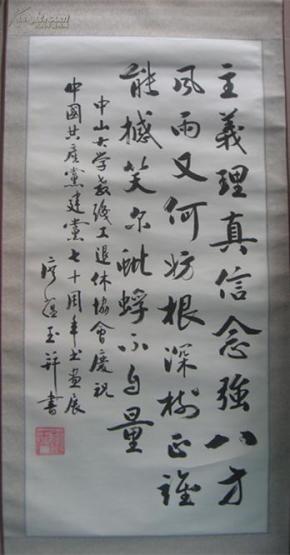 主義理真信念強八方
風雨又何妨根深樹正誰
能撼笑尔蚍蜉不自量
中山大学教职工退休協會慶祝
中國共産黨建黨七十周年书画展
玉祥書